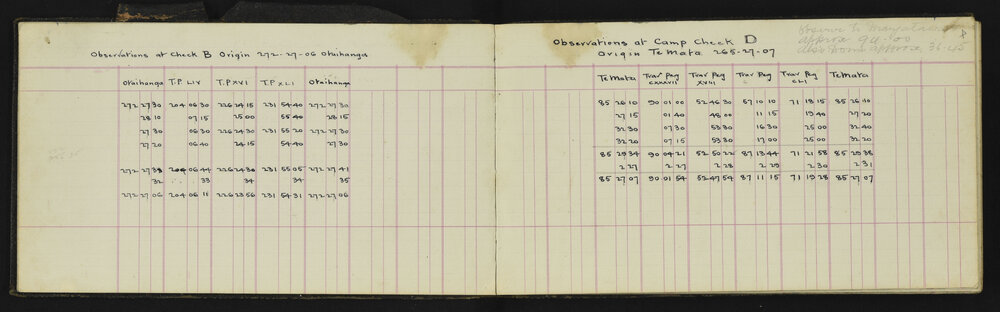 Observations at Check B Origin 272-27-06 Otaihanga
Otaihanga T.P. LIV T.P XVI T.P XLI Otaihanga
272 27 30 204 06 30 226 24 15 231 54 40 272 27 30
28 10 07 15 25 00 55 40 28 15
27 30 06 30 226 24 30 231 55 20 272 27 30
27 20 06 40 24 15 54 40 27 30
272 27 38 204 06 44 226 24 30 231 55 05 272 27 41
32 33 34 34 35
272 27 06 204 06 11 226 23 56 231 54 31 272 27 06
Observations at Camp Check D
Origin Te Mata 265-27-07
Te Mata Trav Peg CXXXVII Trav Peg XVIII Trav Peg Trav Peg CLI Te Mata
85 26 10 90 01 00 52 46 30 87 10 10 71 18 15 85 26 10
27 15 01 40 48 00 11 15 19 40 27 20
32 30 07 30 53 30 16 30 25 00 32 40
32 20 07 15 53 30 17 00 25 00 32 20
85 29 34 90 04 21 52 50 22 87 13 44 71 21 58 85 29 38
2 27 2 27 2 28 2 29 2 30 2 31
85 27 07 90 01 54 52 47 54 87 11 15 71 19 28 85 27 07